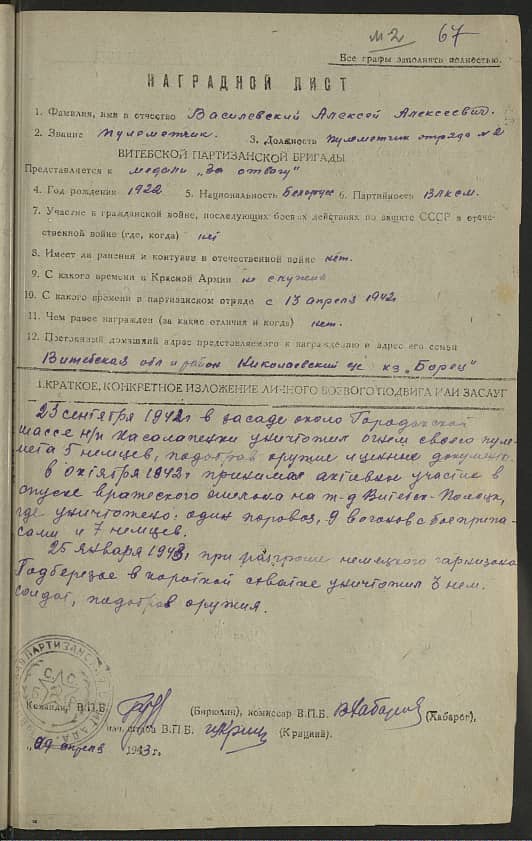 м2 67
Все графы заполнять полностью.
НАГРАДНОЙ ЛИСТ
1. Фамилия, имя и отчество Василевский Алексей Алексеевич.
2. Звание пулеметчик. 3. Должность пулеметчик отряда №2
ВИТЕБСКОЙ ПАРТИЗАНСКОЙ БРИГАДЫ
Представляется к медали „За отвагу"
4. Год рождения 1922 5. Национальность Белорус 6. Партийность ВЛКСМ.
7. Участие в гражданской войне, последующих боевых действиях по защите СССР в отече-
ственной войне (где, когда) нет
8. Имеет ли ранения и контузии в отечественной войне нет.
9. С какого времени в Красной Армии не служил
10. С какого времени в партизанском отряде с 13 апреля 1942г
11. Чем ранее награжден (за какие отличия и когда) нет.
12. Постоянный домашний адрес представляемого к награждению и адрес его семьи
Витебская обл и район Николаевский с/с кз „Борец"
1. КРАТКОЕ, КОНКРЕТНОЕ ИЗЛОЖЕНИЕ ЛИЧНОГО БОЕВОГО ПОДВИГА ИЛИ ЗАСЛУГ
23 сентября 1942г в засаде около Городокской
шассе н/п уничтожил огнем своего пуле-
мета 5 немцев, подобрав оружие и ценные документы.
в октября 1942г принимал активно участие в
спуске вражеского эшелона на ж-д Витебск-Полоцк,
где уничтожено: один паровоз, 9 вагонов с боеприпа-
сами и 7 немцев.
25 января 1943г, при разгроме немецкого гарнизона
Подберезье в короткой схватке уничтожил 3 нем.
солдат, подобрав оружия.
Командир В.П.Б. (Бирюлин), комиссар В.П.Б. В Хабаров (Хабаров),
нач. штаба В.П.Б. (Крицкий).
„29 апреля 1943 г.